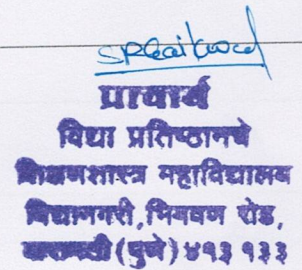 प्राचार्य
विद्या प्रतिष्ठानचे
शिक्षणशास्त्र महाविद्यालय
विद्यानगरी, भिगवण रोड,
बारामती (पुणे) ४१३ १३३